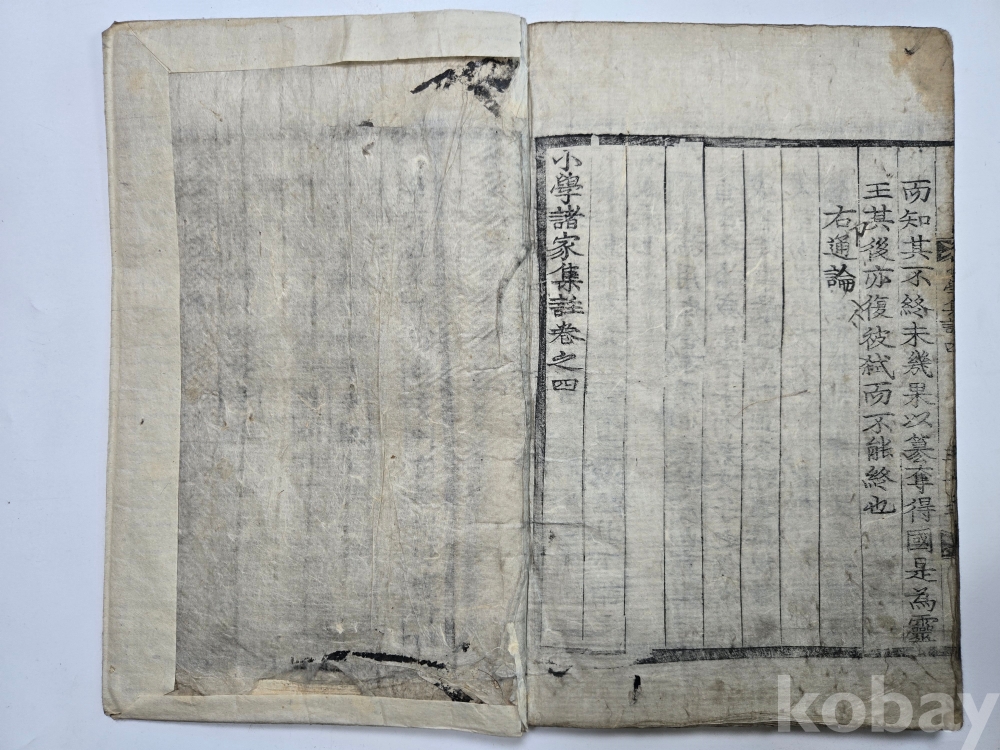 而知其不終未幾果以篡奪得國是為靈
王其後亦復彼弑而不能終也
右通論
小學諸家集註卷之四
kobay